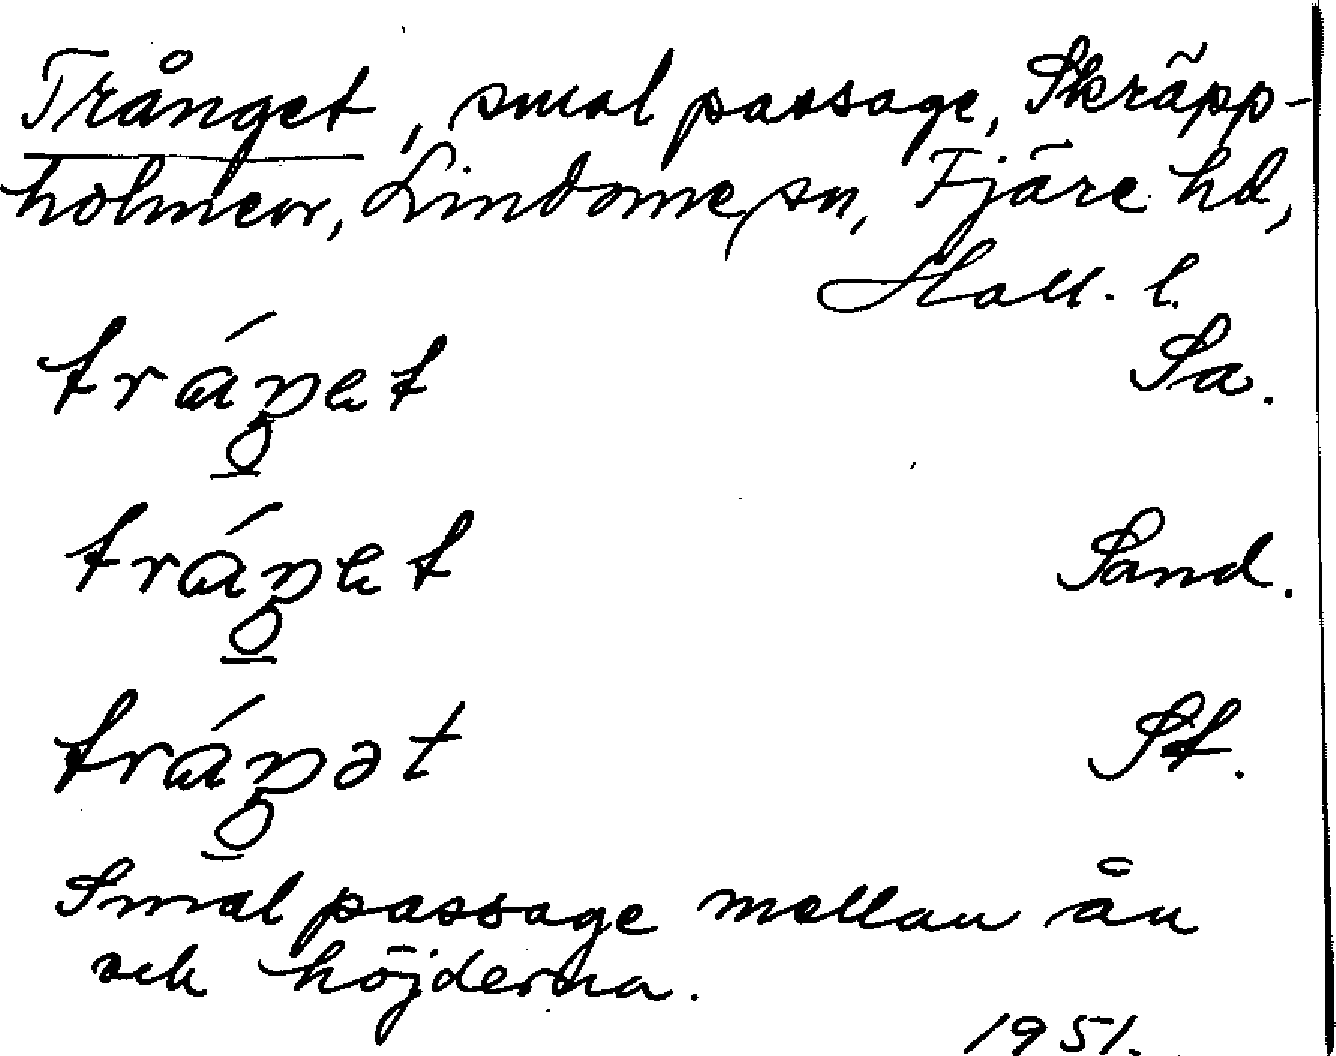 Trånget, smal passage, Skräpp-
holmen, Lindome sn, Fjäre hd,
Hall. l.
tráŋet Sa.
tráŋet Sand.
tráŋət St.
Smal passage mellan ån
och höjderna.
1951.